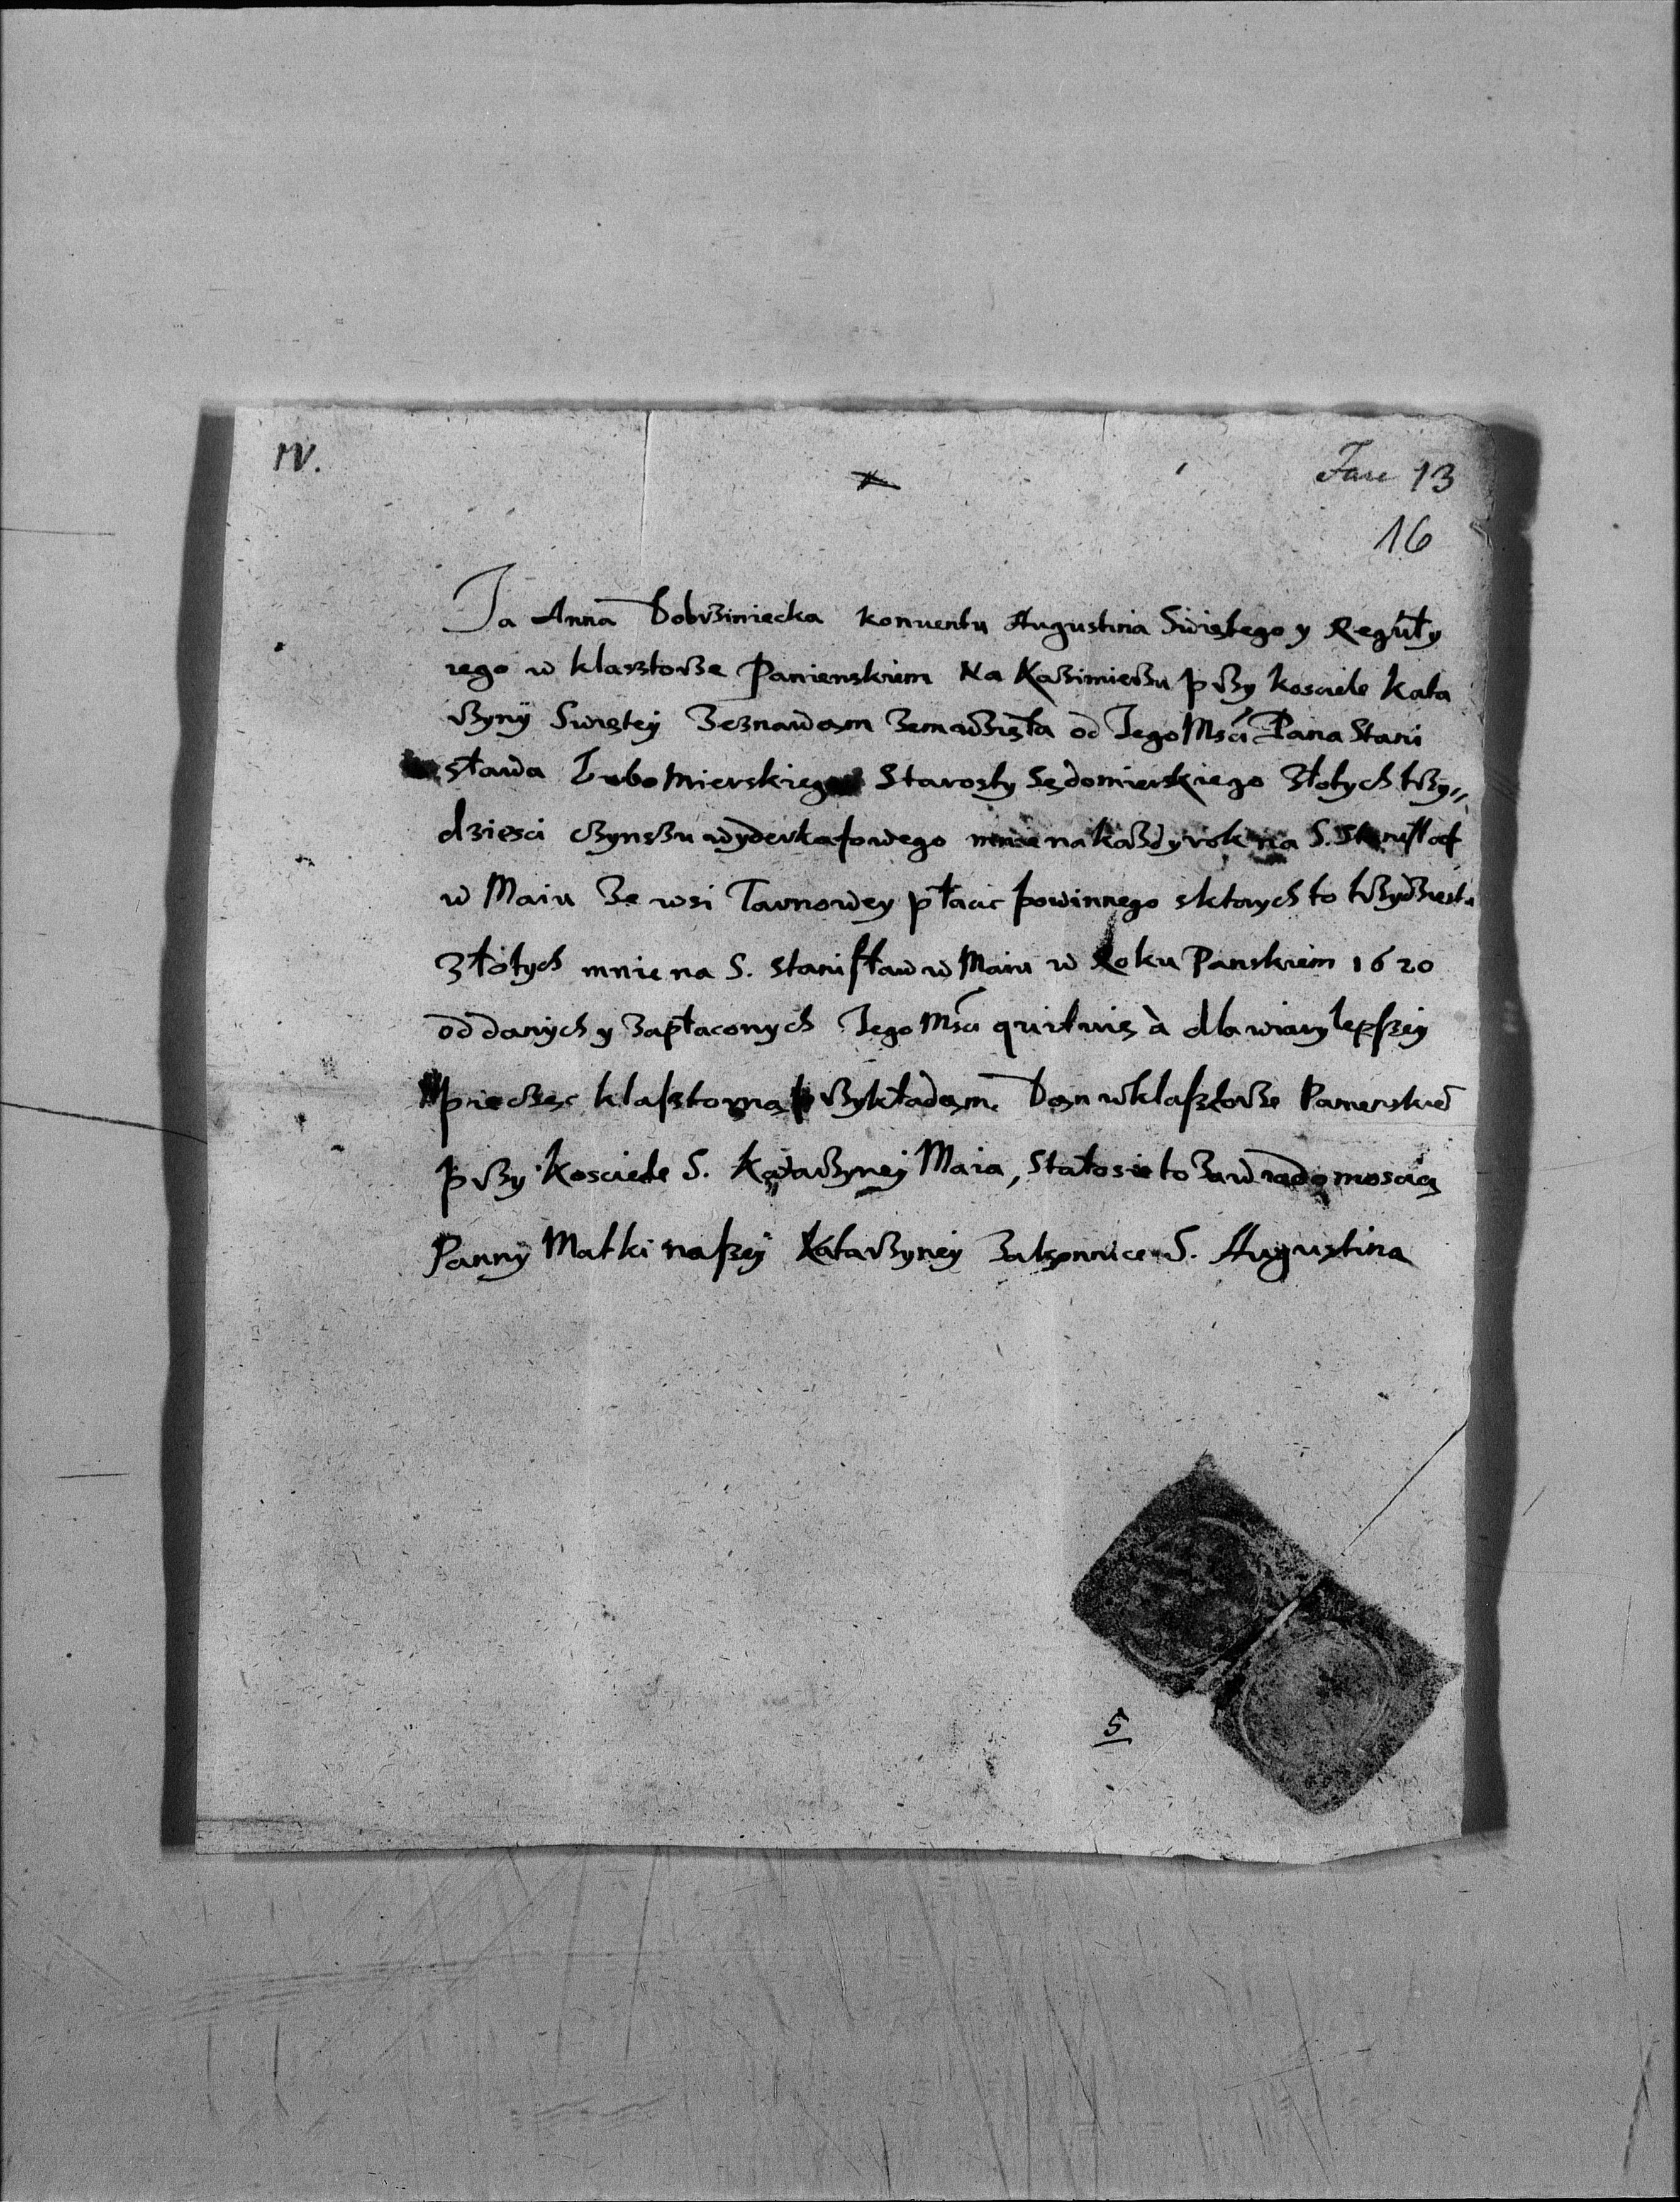 IV.
Fasc 13
16
Ja Anna Dobrziniecka konuentu Augustina Swiętego y Reguły
iego w klasztorze Panienskiem Na Kazimierzu przy kosciele Kata
rzyny Swiętey zeznawam zem wzięła od Jego Mści Pana Stani
sława Lubomierskiego Starosty Sędomierskiego złotych trzy„
dziesci czynszu wyderkafowego mnie na każdy rok na S. Stanisław
w Maiu ze wsi Tarnowey płacic powinnego sktorych to trzydziestu
złotych mnie na S. Stanisław w Maiu w Roku Panskiem 1620
oddanych y zapłaconych Jego Mści quituię à dla wiary lepszey
pieczęc klasztorną przykładam. Dan w klasztorze Panienskiem
przy Kosciele S. Katarzyney Maia, Stało sie to za wiadomoscią
Panny Matki naszey Katarzyney zakonnice S. Augustina
5